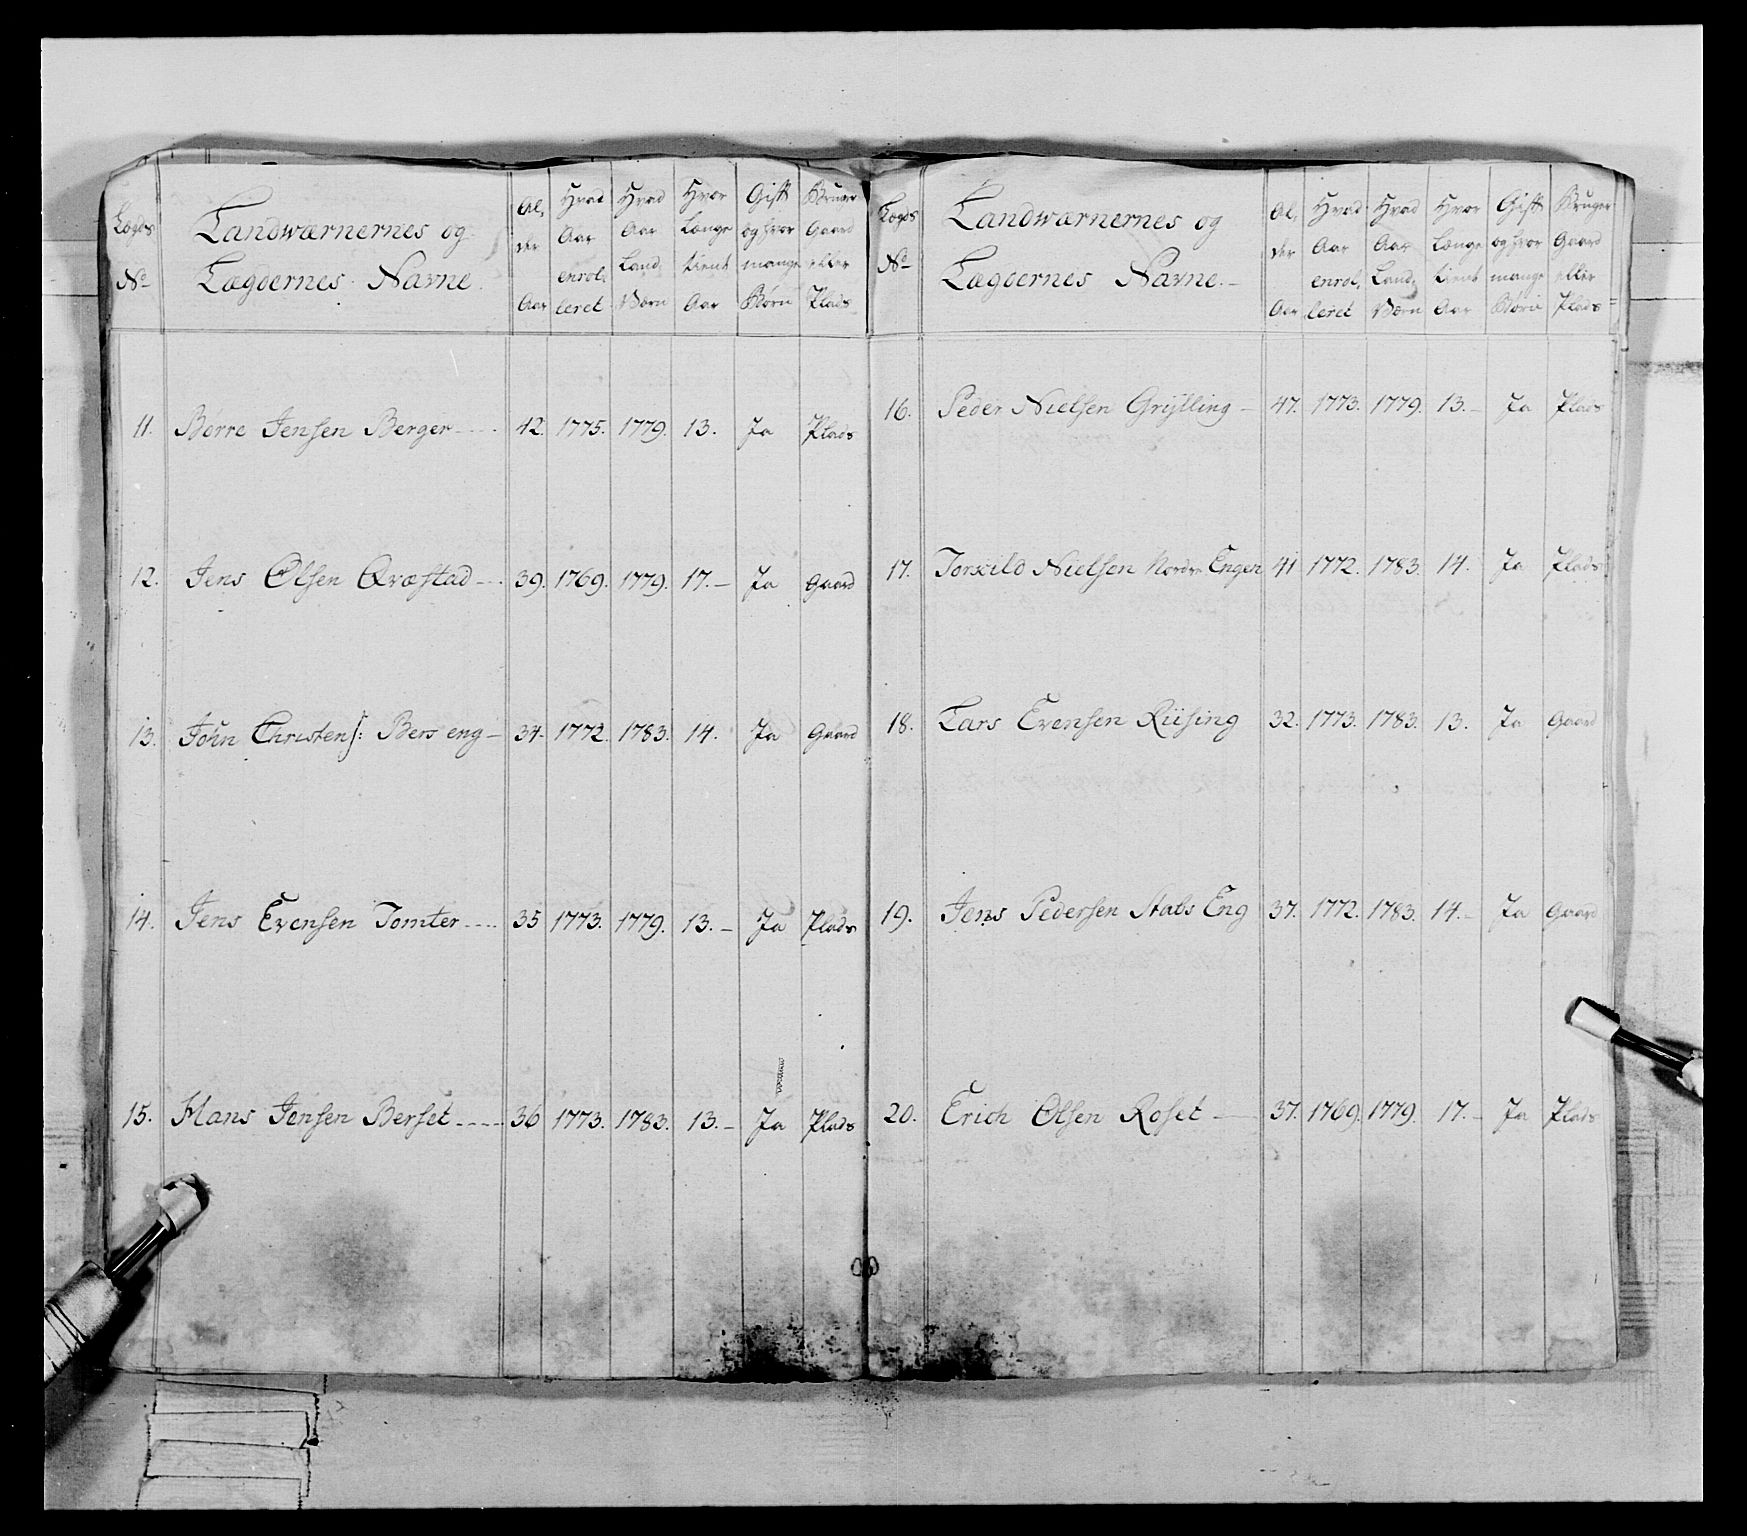 Lægds No Landwærnernes og Lægdernes Navne. Al, der Aar Hvad Aar enrol, leret Hvad Aar Land, Værn Hvor Længe tient Aar Gift og hvor mange Børn Bruger Gaard eller Plads
11. Børre Jensen Berger 42. 1775. 1779. 13. Ja Plads
12. Jens Olsen Qvæstad 39. 1769. 1779. 17. Ja Gaard
13. John Christens: Berg eng 34. 1772. 1783. 14. Ja Gaard
14. Jens Evensen Tomter 35 1773. 1779. 13. Ja Plads
15. Hans Jensen Berset 36 1773. 1783. 13. Ja Plads
Lægds No Landwærnernes og Lægdernes Navne. Al, der Aar Hvad Aar enrol, leret Hvad Aar Land, Værn Hvor Længe tient Aar Gift og hvor mange Børn Bruger Gaard eller Plads
16. Peder Nielsen Grylling 47. 1773. 1779. 13. Ja Plads
17. Torkild Nielsen Nordre Engen 41 1772. 1783. 14. Ja Plads
18. Lars Evensen Riising 32. 1773. 1783. 13. Ja Gaard
19. Jens Pedersen Stabs Eng 37. 1772. 1783. 14. Ja Gaard
20. Erich Olsen Roset 37. 1769. 1779. 17. Ja Plads